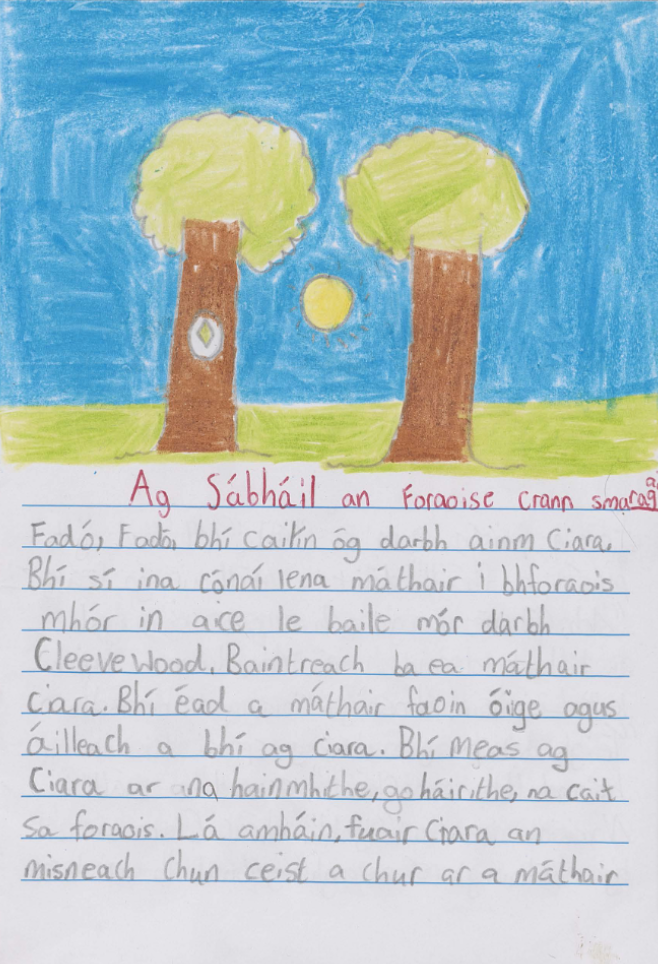 Ag Sábháil an Foraoise crann smaragaid
Fadó, Fadó, bhí cailín óg darbh ainm Ciara.
Bhí sí ina cónaí lena máthair i bhforaois
mhór in aice le baile mór darbh
Cleevewood. Baintreach ba ea máthair
Ciara. Bhí éad a máthair faoin óige agus
áilleach a bhí ag Ciara. Bhí meas ag
Ciara ar na hainmhithe, go háirithe, na cait
sa foraois. Lá amháin, fuair Ciara an
misneach chun ceist a chur ar a máthair